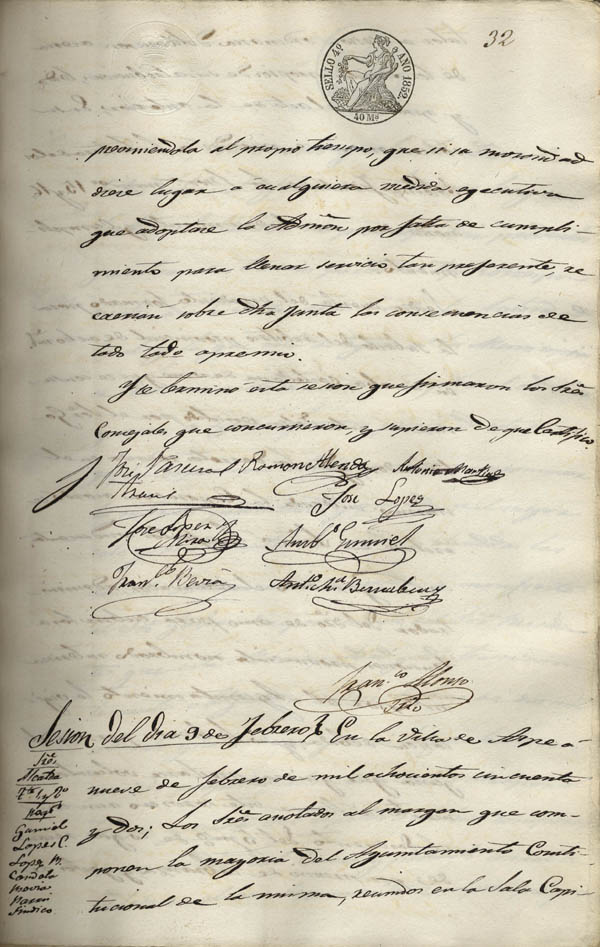 SELLO 4º AÑO 1852.
40 Ms
32
premiendola al propio tiempo, que si su morosidad
diere lugar á cualquiera medida egecutiva
que adoptare la Admón por falta de cumpli-
miento para llenar servicio tan preferente, re
caerian sobre dha Junta las consecuencias de
todo apremio.
Y se terminó esta sesion que firmaron los Sres
Concejales que concurrieron, y supieron de que Certifico.
José Pascual Ramon Antonio Martinez
José Lopez
José Lopez Amb.º Gumiel
Fran.co Beviá Ant.º
Fran.co Alonso
Srio
Sesion del dia 9 de Febrero En la Villa de Aspe á
nueve de febrero de mil ochocientos cincuenta
y dos; Los Sres anotados al margen que com-
ponen la mayoria del Ayuntamiento Consti-
tucional de la misma, reunidos en la Sala Capi
Sres
Gumiel
Lopez C.
Lopez M.
Candela
Sindico